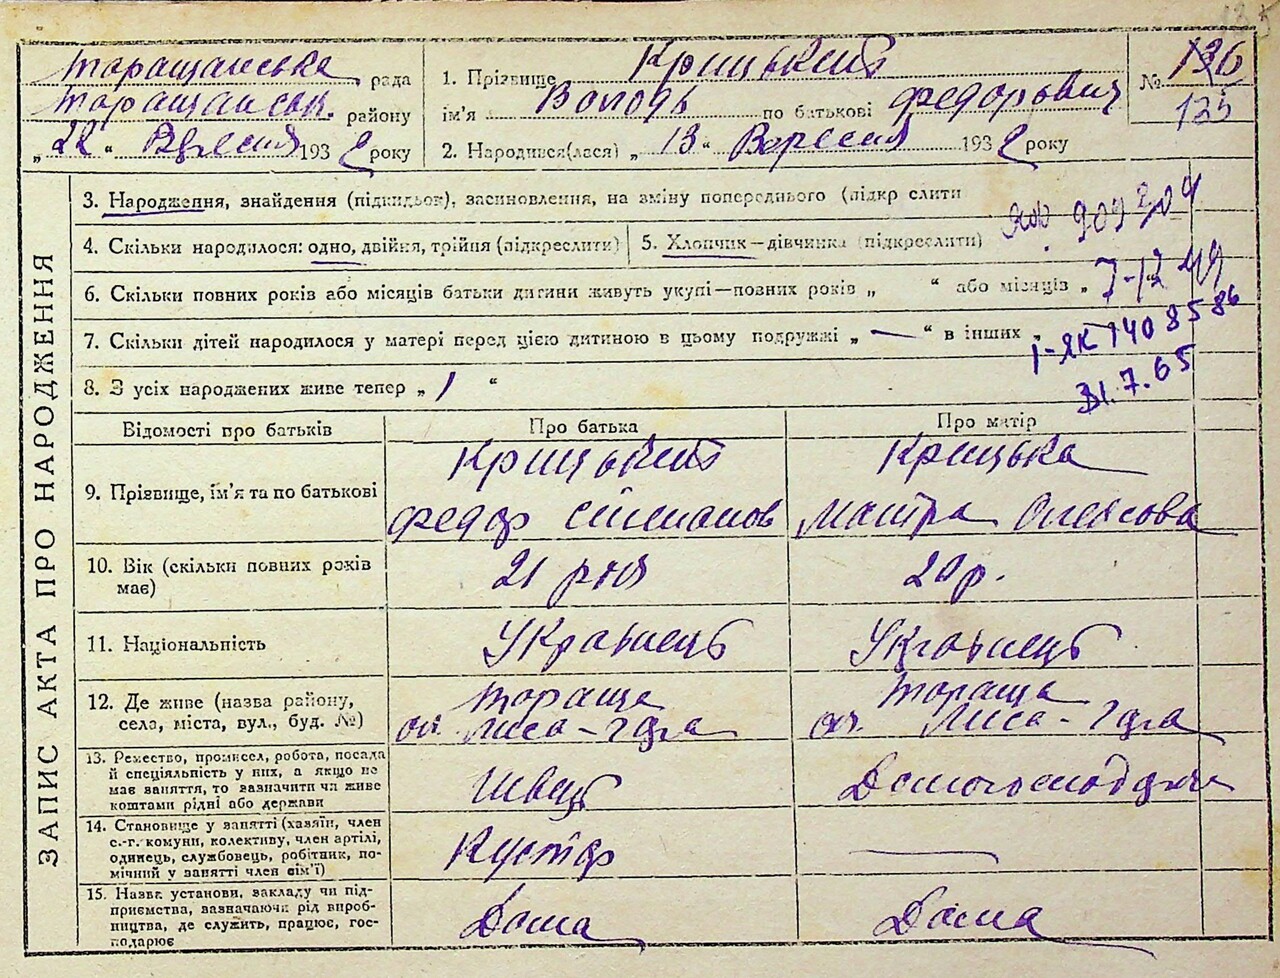 Таращанська рада
Таращанськ. району
„22“ Вересня 1932 року
1. Прізвище Крицький
ім'я Володь по батькові Федорович
2. Народився(лася) „13“ Вересня 1932 року
№ 136
135
ЗАПИС АКТА ПРО НАРОДЖЕННЯ
3. Народження, знайдення (підкидьок), засиновлення, на зміну попереднього (підкреслити
4. Скільки народилося: одно, двійня, трійня (підкреслити)
5. Хлопчик—дівчинка (підкреслити)
909204
6. Скільки повних років або місяців батьки дитини живуть укупі—повних років „ “ або місяців „
7-12 49
7. Скільки дітей народилося у матері перед цією дитиною в цьому подружжі „ — “ в інших „
I-ЯК 1408586
31.7.65
8. З усіх народжених живе тепер „ 1 “
Відомості про батьків
Про батька
Про матір
9. Прізвище, ім'я та по батькові
Крицький
Федор Степанов
Крицька
Мотря Олексова
10. Вік (скільки повних років має)
21 рік
20 р.
11. Національність
Українець
Українець
12. Де живе (назва району,
села, міста, вул., буд. №)
Тараща
Лиса-Гора
Тараща
Лиса-Гора
13. Ремество, промисел, робота, посада
й спеціяльність у них, а якщо не
має заняття, то зазначити чи живе
коштами рідні або держави
Швець
Домогосподарка
14. Становище у занятті (хазяїн, член
с.-г. комуни, колективу, член артілі,
одинець, службовець, робітник, по-
мічний у занятті член сім'ї)
Кустар
—
15. Назва установи, закладу чи під-
приємства, зазначаючи рід вироб-
ництва, де служить, працює, гос-
подарює
Дома
Дома